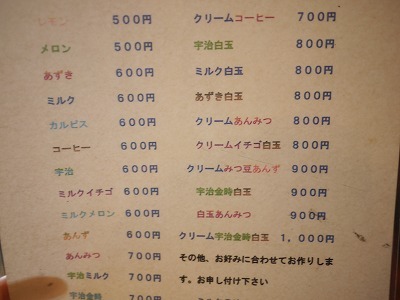 レモン 500円
メロン 500円
あずき 600円
ミルク 600円
カルピス 600円
コーヒー 600円
宇治 600円
ミルクイチゴ 600円
ミルクメロン 600円
あんず 600円
あんみつ 700円
宇治ミルク 700円
宇治金時 700円
クリームコーヒー 700円
宇治白玉 800円
ミルク白玉 800円
あずき白玉 800円
クリームあんみつ 800円
クリームイチゴ白玉 800円
クリームみつ豆あんず 900円
宇治金時白玉 900円
白玉あんみつ 900円
クリーム宇治金時白玉 1,000円
その他、お好みに合わせてお作りしま
す。お申し付け下さい